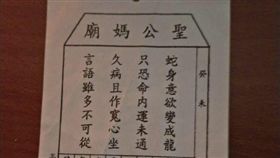 聖公媽廟
癸未
蛇身意欲變成龍
只恐命內運未通
久病且作寬心坐
言語雖多不可從